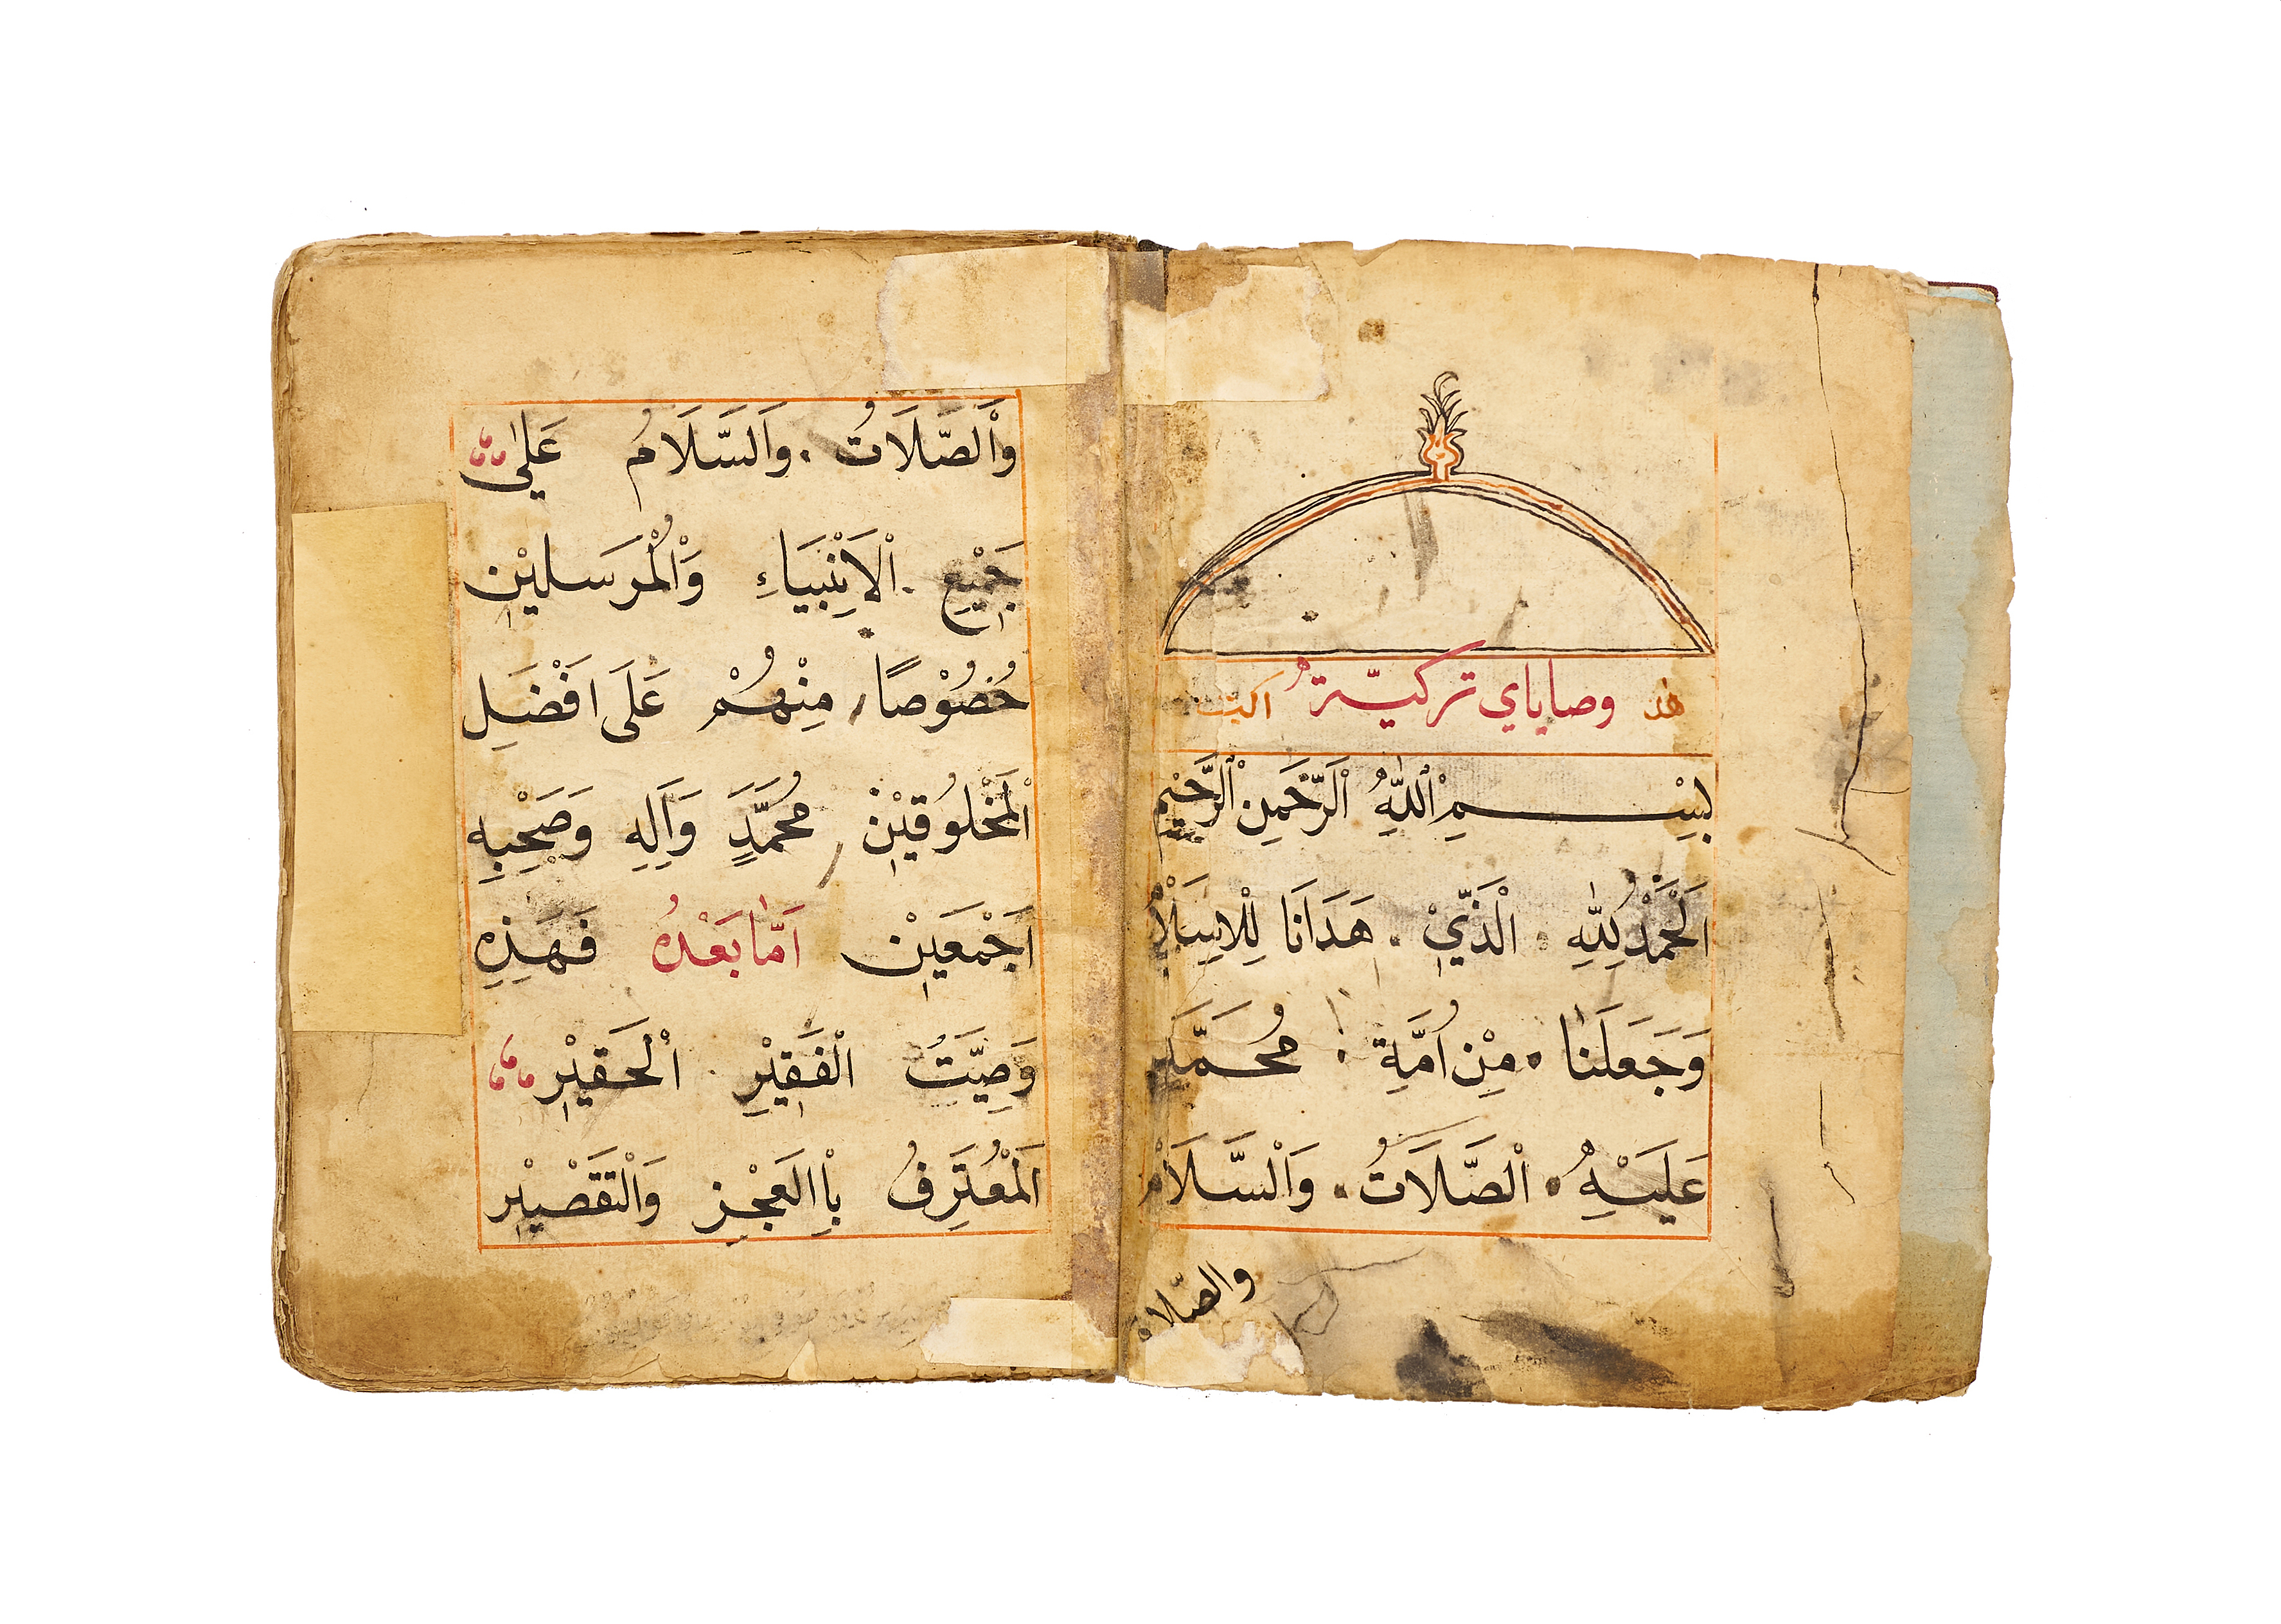 هذا وصاياي تركيّة
بِسْمِ اْللّٰهِ اْلرَّحْمٰنِ اْلرَّحٖيمِ
اَلْحَمْدُ لِلّٰهِ الْذَّيٖ هَدَانَا لِلْاِسْلَامْ
وَجَعَلَنٰا مِنْ اُمَّةِ مُحَمَّدٍ
عَلَيْهِ اْلصَّلَاتُ وَاْلسَّلَامْ
والصّلاة
وَاْلصَّلَاتُ وَاَلسَّلَامُ عَلىٰ
جَمٖيْعِ اْلاَنْبِيَاءِ وَاْلمُرْسَلٖيْن
خُصُوْصًا مِنْهُمْ عَلَى اَفْضَلِ
اْلمَخْلُوقٖيْنَ مُحَمَّدٍ وَاَلِهِ وَصَحْبِهِ
اَجْمَعٖيْنَ اَمّٰا بَعْدُهُ فَهَذِهِ
وَصِيَّتُ الْفَقٖيْرِ اْلحَقٖيْرِ
اَلمُعْتَرِفُ بِاالعَجْزِ وَالْتَقْصٖيْرِ